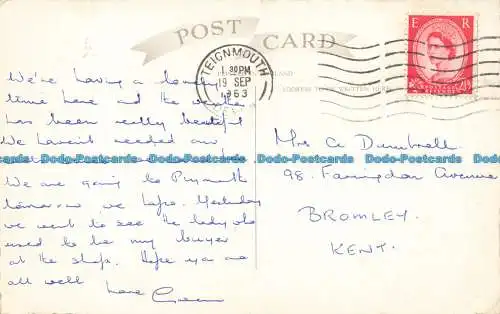 POST CARD
E R
TEIGNMOUTH
1.30 PM
19 SEP
1963
ADDRESS TO BE WRITTEN HERE
We're having a lovely
time here and the weather
has been really beautiful
We haven't needed our
We are going to Plymouth
tomorrow we hope. Yesterday
we went to see the lady who
used to be my buyer
at the shop. Hope you are
all well
Love
Mrs A Dumbrell
98. Farringdon Avenue
BROMLEY.
KENT.
Dodo-Postcards Dodo-Postcards Dodo-Postcards Dodo-Postcards